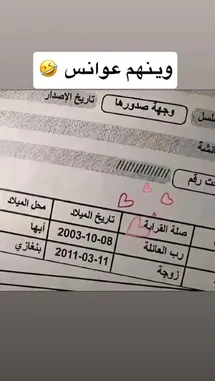 وينهم عوانس 🤣
تاريخ الإصدار
وجهة صدورها
صلة القرابة
تاريخ الميلاد
محل الميلاد
رب العائلة
2003-10-08
أبها
زوجة
2011-03-11
بنغازي